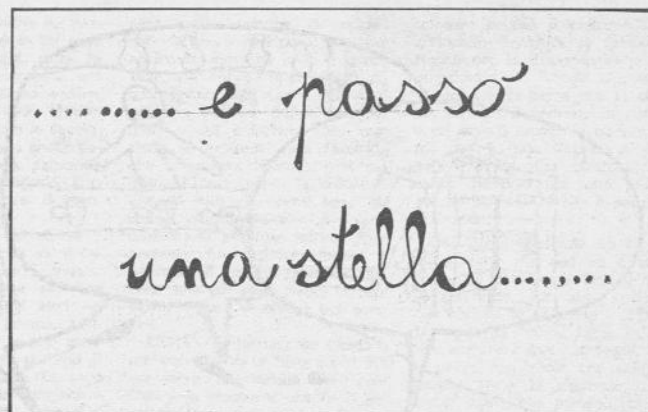 ........... e passó
una stella........